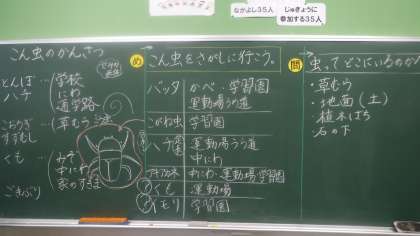 なかよし35人
じゅぎょうに
参加する35人
こん虫のかんさつ
とんぼ
ハチ
学校
にわ
通学路
こおろぎ
すずむし
草むら
くも
みぞ
中にわ
家のすきま
ごきぶり
め こん虫をさがしに行こう。
バッタ かべ・学習園
運動場うら道
こがね虫 学習園
ハチ 運動場うら道
中にわ
中にわ・運動場・学習園
くも 運動場
学習園
問 虫ってどこにいるのか
・草むら
・地面(土)
・植木ばち
・石の下